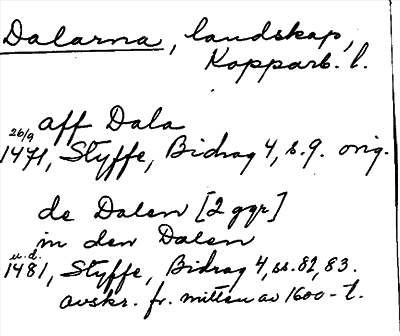 Dalarna, landskap,
Kopparb. l.
aff Dala
26/9
1471, Styffe, Bidrag 4, s. 9. orig.
de Dalen [2 ggr]
in den Dalen
u.d.
1481, Styffe, Bidrag 4, ss. 82, 83.
avskr. fr. mitten av 1600-t.